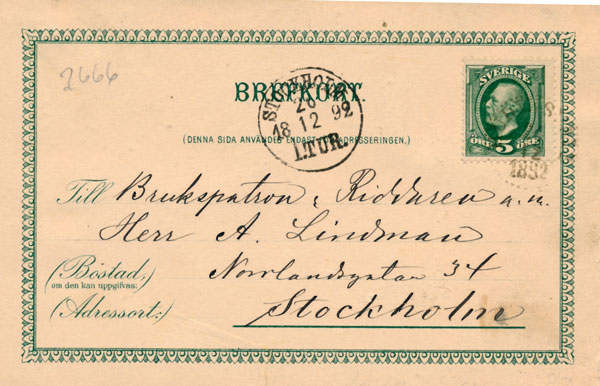 2666
BREFKORT
SVERIGE
ÖRE 5 ÖRE
STOCKHOLM
28
18 12 92
1.TUR.
(DENNA SIDA ANVÄNDES ENDAST FÖR ADRESSERINGEN.)
1892
Till Brukspatron, Riddaren a. m.
Herr A. Lindman
(Bostad,)
om den kan uppgifvas:
Norrlandsgatan 34
(Adressort:)
Stockholm